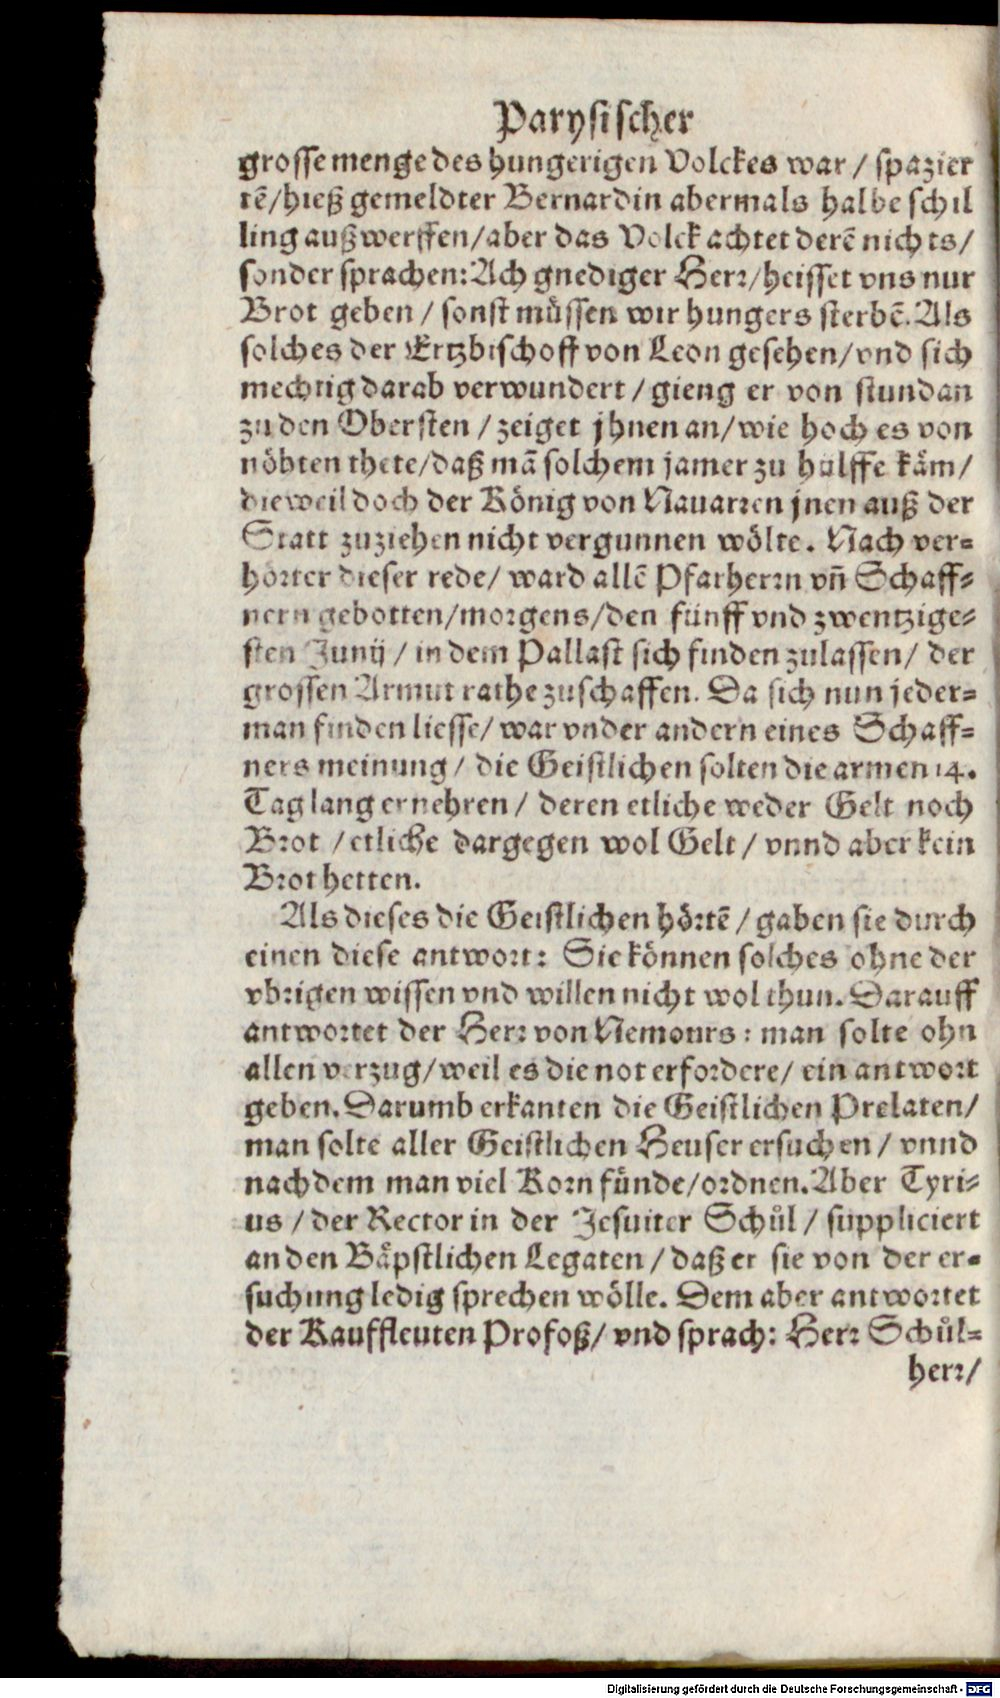 Parysischer
grosse menge des hungerigen Volckes war / spazier
tẽ/hieß gemeldter Bernardin abermals halbe schil
ling außwerffen/aber das Volck achtet derẽ nichts/
sonder sprachen: Ach gnediger Herr/heisset vns nur
Brot geben / sonst müssen wir hungers sterbẽ. Als
solches der Ertzbischoff von Leon gesehen/vnd sich
mechtig darab verwundert / gieng er von stundan
zu den Obersten / zeiget jhnen an/wie hoch es von
nöhten thete/daß mã solchem jamer zu hülffe käm/
dieweil doch der König von Nauarren jnen auß der
Statt zuziehen nicht vergunnen wölte. Nach ver-
hörter dieser rede/ ward allẽ Pfarherrn vñ Schaff-
nern gebotten/morgens/den fünff vnd zwentzige-
sten Junij / in dem Pallast sich finden zulassen/ der
grossen Armut rathe zuschaffen. Da sich nun jeder-
man finden liesse/ war vnder andern eines Schaff-
ners meinung / die Geistlichen solten die armen 14.
Tag lang ernehren / deren etliche weder Gelt noch
Brot / etliche dargegen wol Gelt / vnnd aber kein
Brot hetten.
Als dieses die Geistlichen hörtẽ / gaben sie durch
einen diese antwort: Sie können solches ohne der
vbrigen wissen vnd willen nicht wol thun. Darauff
antwortet der Herr von Nemours: man solte ohn
allen verzug/weil es die not erfordere/ ein antwort
geben. Darumb erkanten die Geistlichen Prelaten/
man solte aller Geistlichen Heuser ersuchen / vnnd
nachdem man viel Korn fünde/ordnen. Aber Tyri-
us / der Rector in der Jesuiter Schůl / suppliciert
an den Bäpstlichen Legaten / daß er sie von der er-
suchung ledig sprechen wölle. Dem aber antwortet
der Kauffleuten Profoß/ vnd sprach: Herr Schůl-
herr/
Digitalisierung gefördert durch die Deutsche Forschungsgemeinschaft - DFG